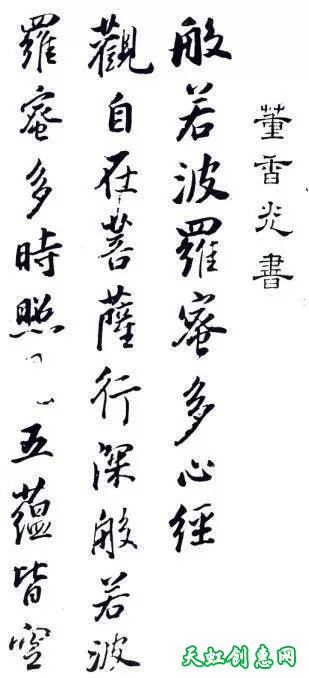 董香光書
般若波羅蜜多心經
觀自在菩薩行深般若波
羅蜜多時照五蘊皆空
天虹创惠网